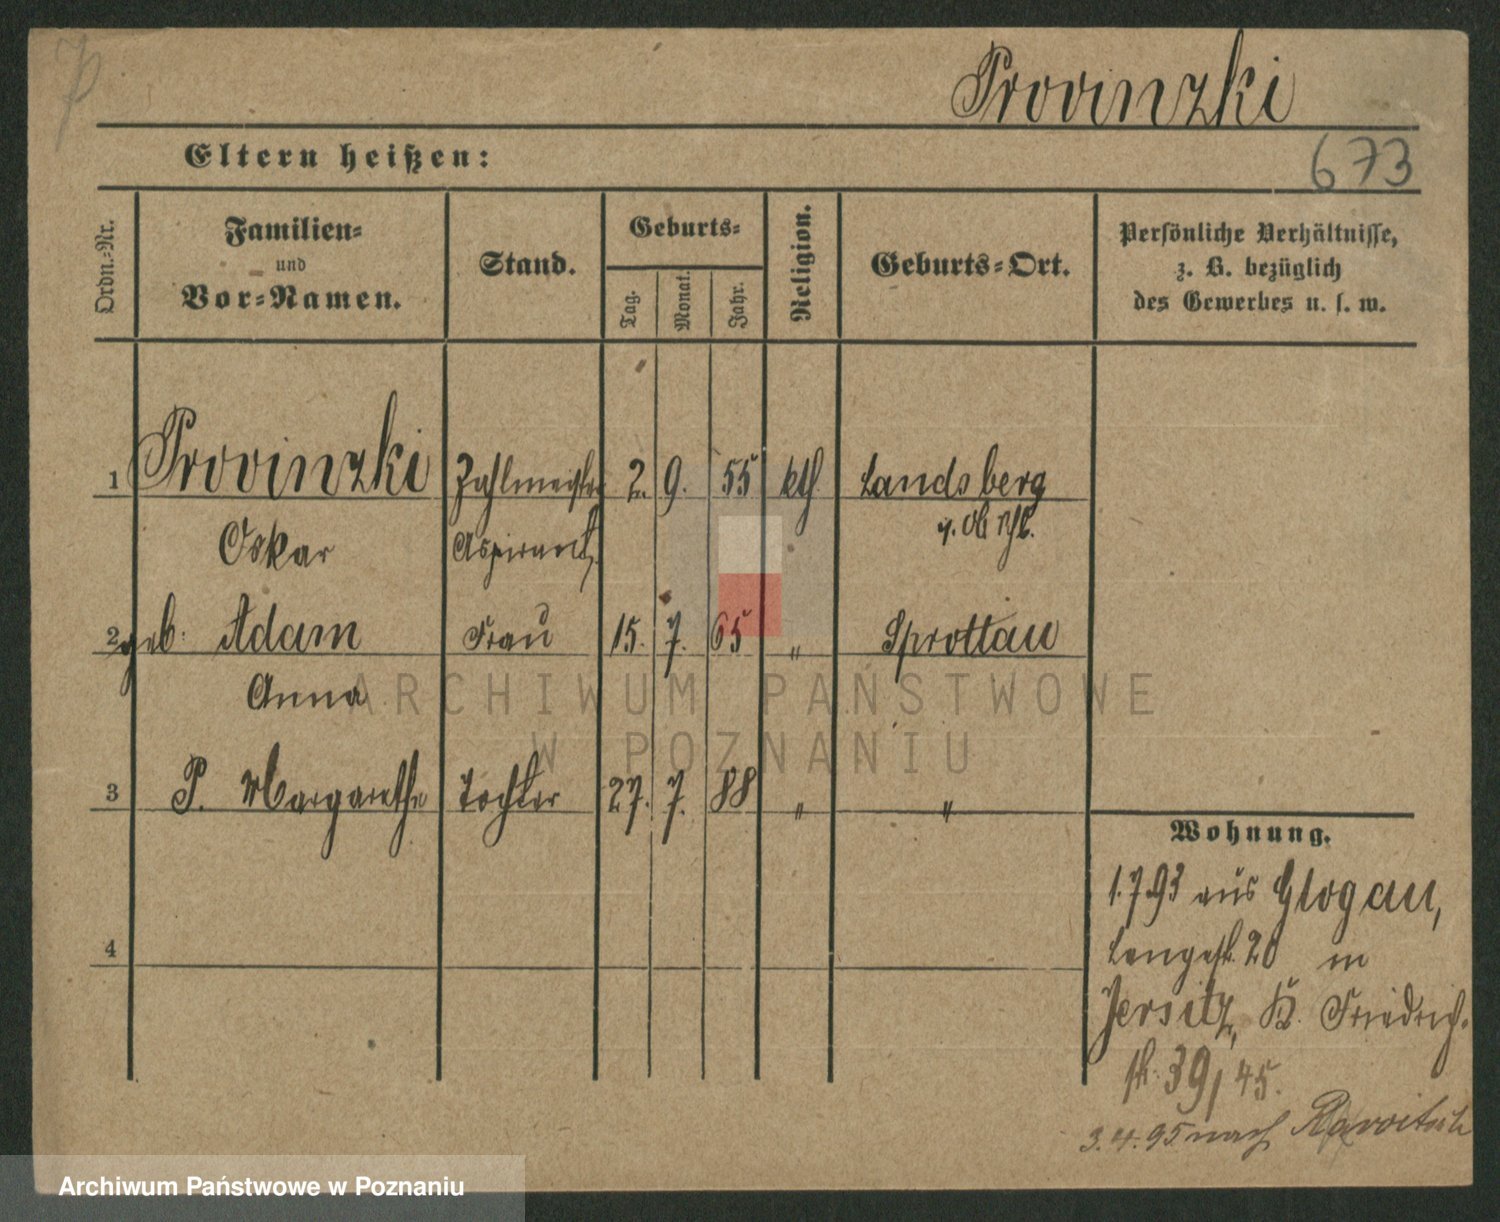 P
Provinzki
Eltern heißen:
673
Ordn.-Nr.
Familien-
und
Vor-Namen.
Stand.
Geburts-
Tag.
Monat.
Jahr.
Religion.
Geburts-Ort.
Persönliche Verhältnisse,
z. B. bezüglich
des Gewerbes u. s. w.
1 Provinzki Zahlmeister 2. 9. 55 kth Landsberg
Oskar Aspirant
2 geb. Adam Frau 15. 7. 65 " Sprottau
Anna
3 P. Margarethe Tochter 27. 7. 88 " "
4
Wohnung.
1.7.93 aus Glogau,
Langestr. 20 in
Jersitz, K. Friedrich-
str. 39/45.
3.4.95 nach Rawitsch
ARCHIWUM PAŃSTWOWE
W POZNANIU
Archiwum Państwowe w Poznaniu